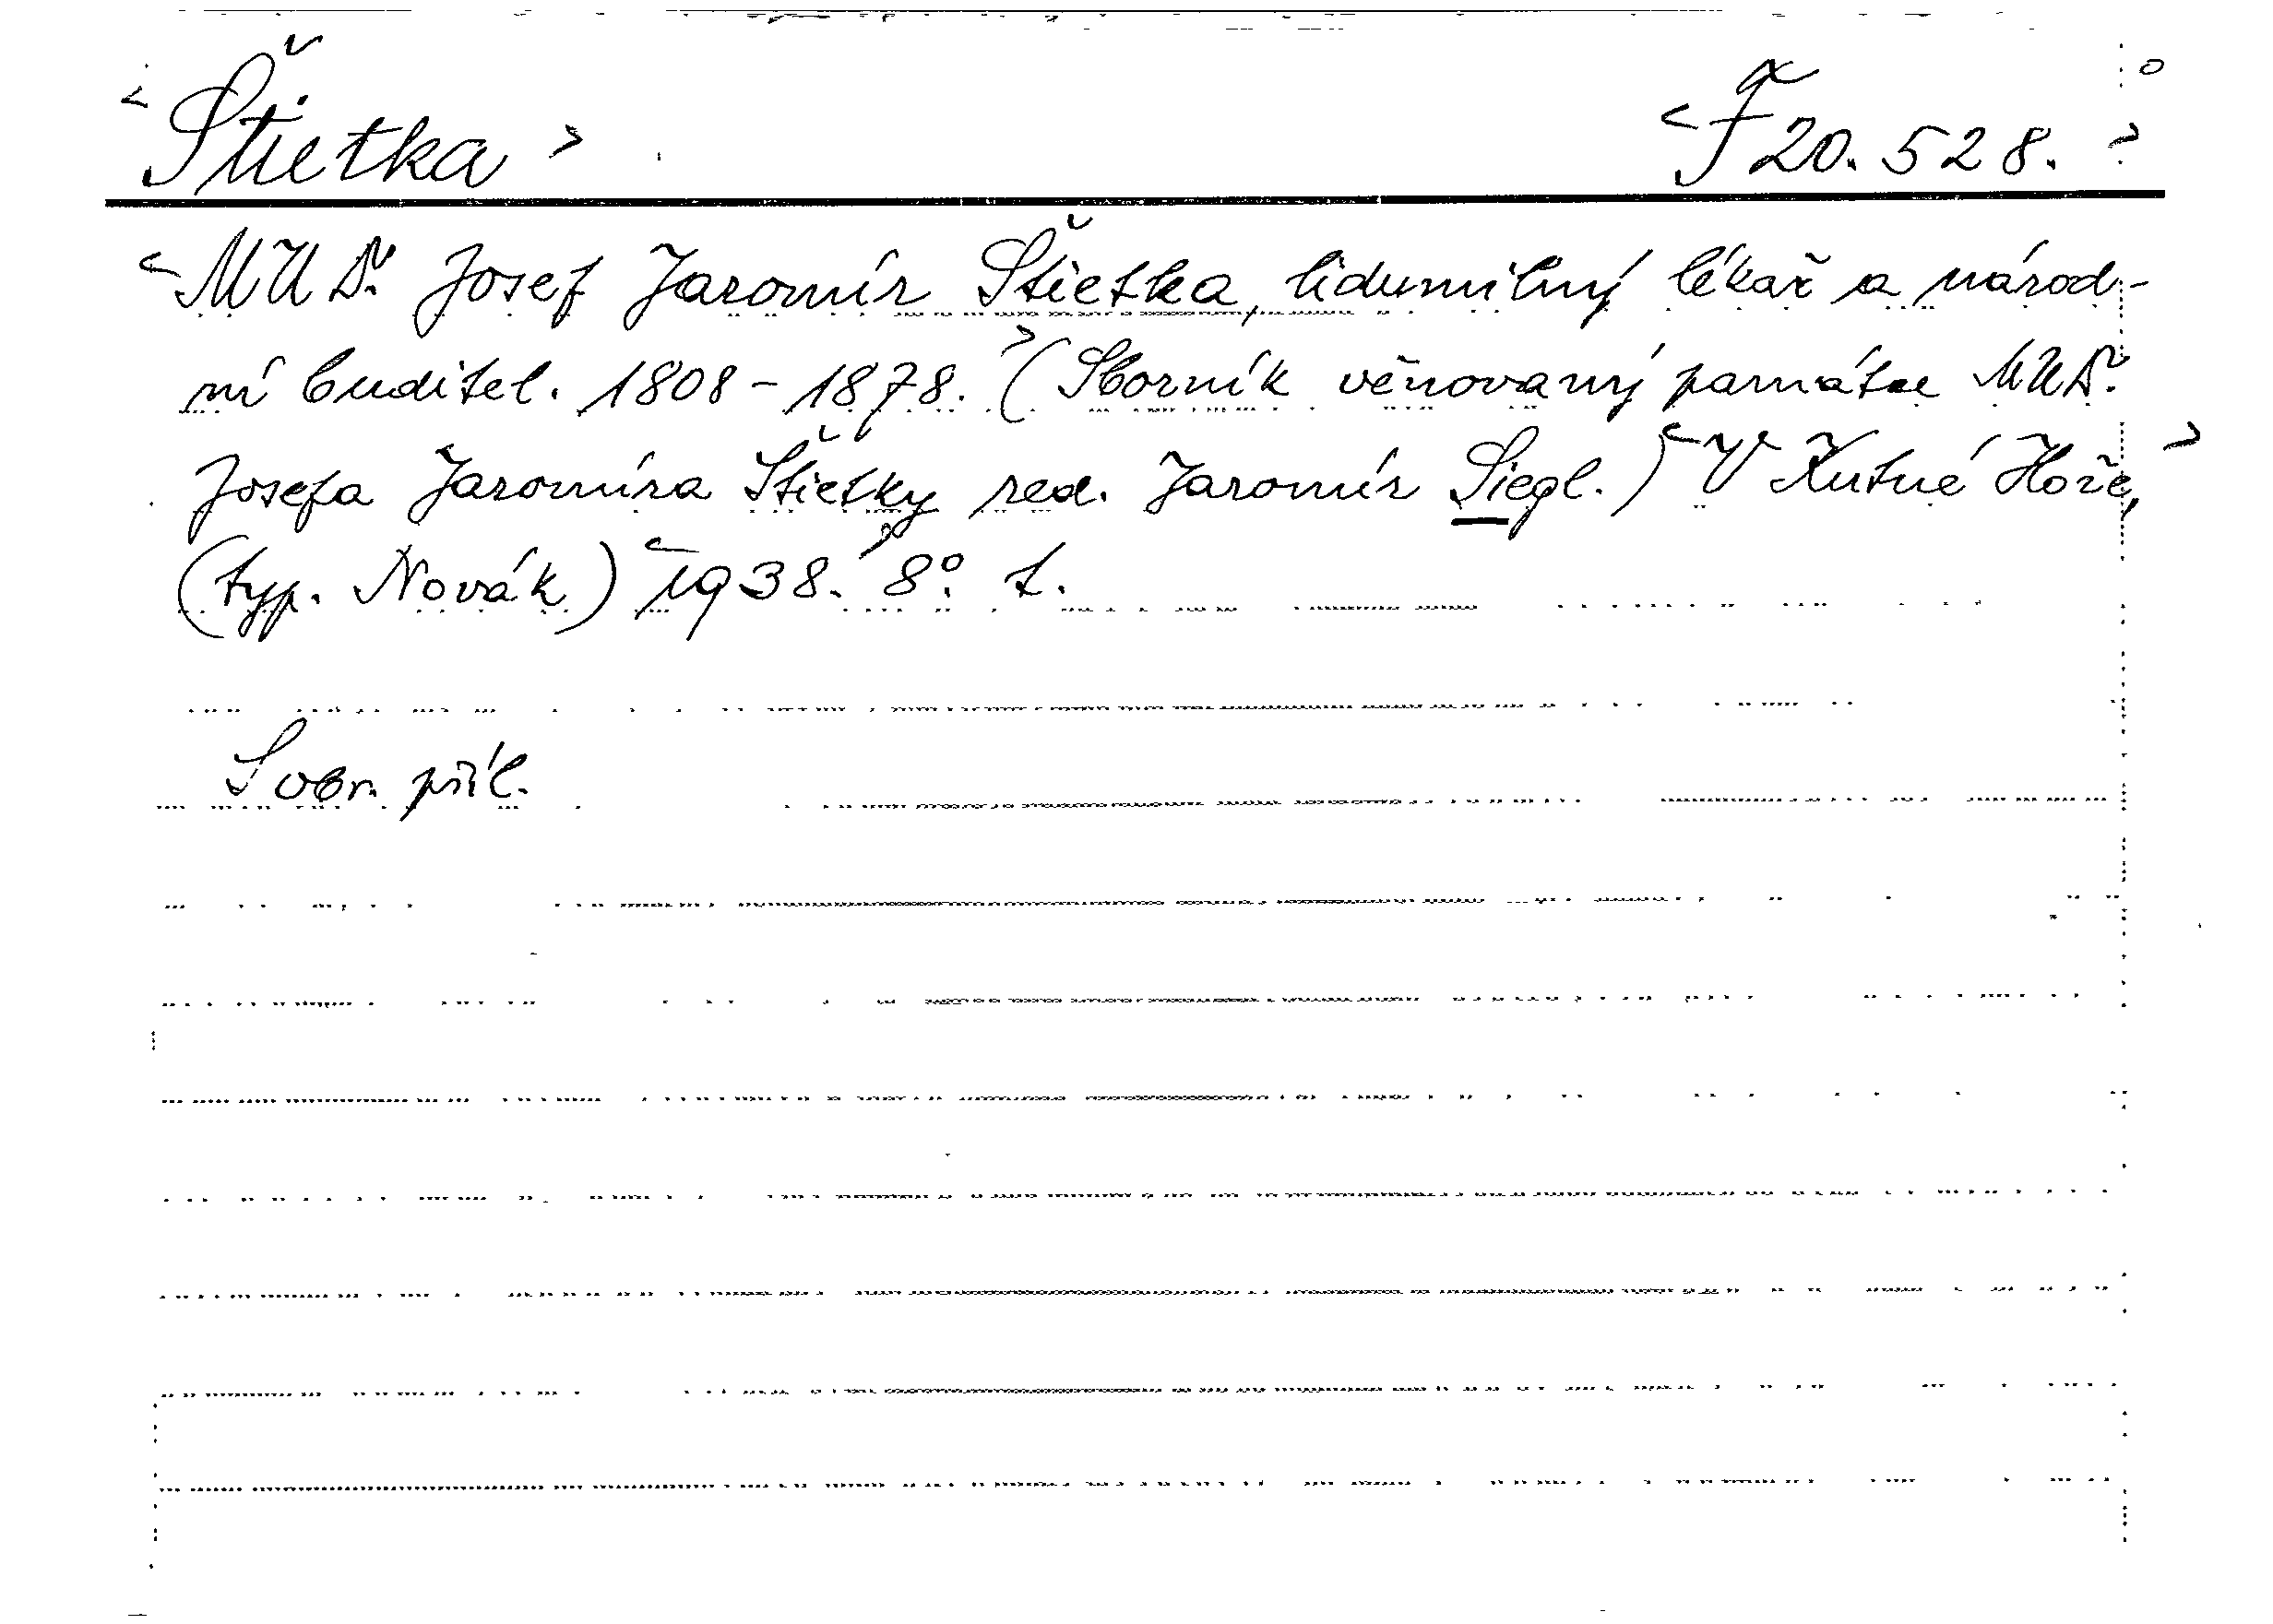 <Štietka> <F 20.528.>
<MUDr. Josef Jaromír Štietka, lidumilný lékař a národ-
ní buditel. 1808-1878.> (Sborník věnovaný památce MUDr.
Josefa Jaromíra Štietky red. Jaromír Siegl.) <V Kutné Hoře,>
(typ. Novák) <1938.> 8°. t.
S obr. příl.